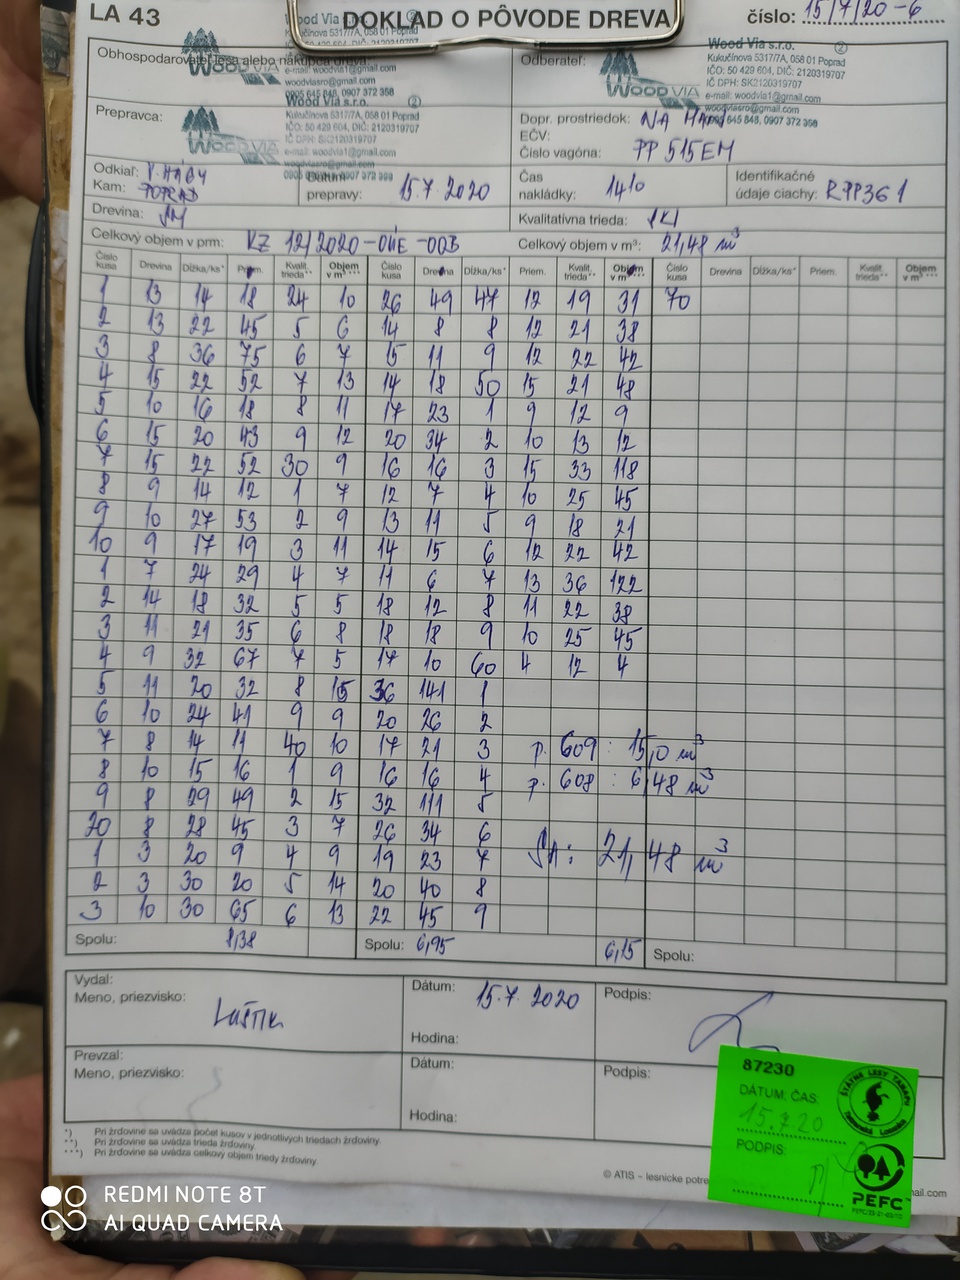 LA 43
DOKLAD O PÔVODE DREVA
číslo: 15/7/20-6
Obhospodarovateľ lesa alebo nákupca dreva:
WOOD VIA
Wood Via s.r.o. 2
Kukučínova 5317/7A, 058 01 Poprad
e-mail: woodvia1@gmail.com
woodviasro@gmail.com
0905 645 848, 0907 372 358
Odberateľ:
WOOD VIA
Wood Via s.r.o. 2
Kukučínova 5317/7A, 058 01 Poprad
IČO: 50 429 604, DIČ: 2120319707
IČ DPH: SK2120319707
e-mail: woodvia1@gmail.com
woodviasro@gmail.com
0905 645 848, 0907 372 358
Prepravca:
WOOD VIA
Wood Via s.r.o. 2
Kukučínova 5317/7A, 058 01 Poprad
IČO: 50 429 604, DIČ: 2120319707
IČ DPH: SK2120319707
e-mail: woodvia1@gmail.com
woodviasro@gmail.com
0905 645 848, 0907 372 358
Dopr. prostriedok: NA
EČV:
Číslo vagóna: PP 515EM
Odkiaľ:
Kam: POPRAD
Dátum prepravy: 15.7.2020
Čas nakládky: 14 10
Identifikačné údaje ciachy: RPP36 1
Drevina: SM
Kvalitatívna trieda:
Celkový objem v prm: KZ 12/2020-OÚE-003
Celkový objem v m³: 21,48 m³
Číslo kusa Drevina Dĺžka/ks* Priem. Kvalit. trieda** Objem v m³*** Číslo kusa Drevina Dĺžka/ks* Priem. Kvalit. trieda** Objem v m³*** Číslo kusa Drevina Dĺžka/ks* Priem. Kvalit. trieda** Objem v m³***
1 13 14 18 24 10 26 49 47 12 19 31 70
2 13 22 45 5 6 14 8 8 12 21 38
3 8 36 75 6 7 15 11 9 12 22 42
4 15 22 52 7 13 14 18 50 15 21 48
5 10 16 18 8 11 17 23 1 9 12 9
6 15 20 43 9 12 20 34 2 10 13 12
7 15 22 52 30 9 16 16 3 15 33 118
8 9 14 12 1 7 12 7 4 10 25 45
9 10 27 53 2 9 13 11 5 9 18 21
10 9 17 19 3 11 14 15 6 12 22 42
1 7 24 29 4 7 11 6 7 13 36 122
2 14 18 32 5 5 18 12 8 11 22 38
3 11 21 35 6 8 18 18 9 10 25 45
4 9 32 67 7 5 17 10 60 4 12 4
5 11 20 32 8 15 36 141 1
6 10 24 41 9 9 20 26 2
7 8 14 11 40 10 17 21 3 p. 609 : 15,0 m³
8 10 15 16 1 9 16 16 4 p. 608 : 6,48 m³
9 8 29 49 2 15 32 111 5
20 8 28 45 3 7 26 34 6
1 3 20 9 4 9 19 23 7 SA: 21,48 m³
2 3 30 20 5 14 20 40 8
3 10 30 65 6 13 22 45 9
Spolu: 8,38 Spolu: 6,95 6,15 Spolu:
Vydal:
Meno, priezvisko: LUŠTIK
Dátum: 15.7.2020
Hodina:
Podpis:
Prevzal:
Meno, priezvisko:
Dátum:
Hodina:
Podpis:
*) Pri žrďovine sa uvádza počet kusov v jednotlivých triedach žrďoviny.
**) Pri žrďovine sa uvádza trieda žrďoviny.
***) Pri žrďovine sa uvádza celkový objem triedy žrďoviny.
© ATIS – lesnícke potre
ail.com
87230
DÁTUM, ČAS:
15.7.20
PODPIS:
ŠTÁTNE LESY TANAPU
Tatranská Lomnica
PEFC
REDMI NOTE 8T
AI QUAD CAMERA